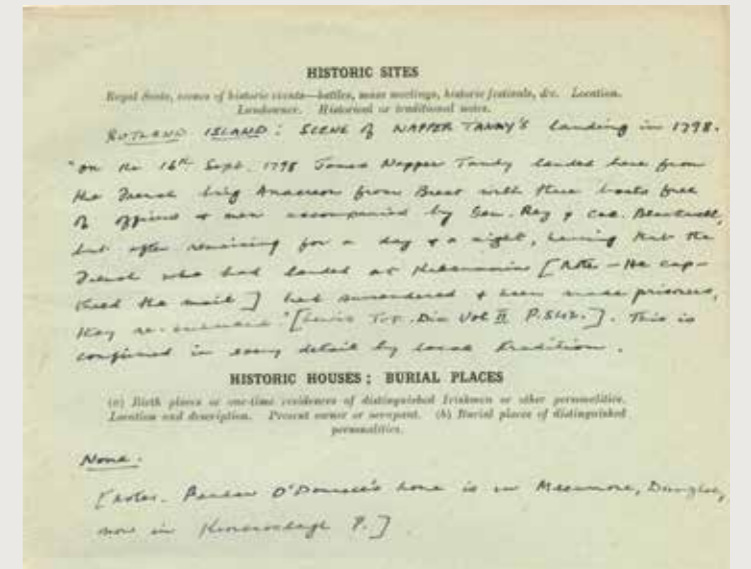 HISTORIC SITES
Royal Seats, scenes of historic events—battles, mass meetings, historic festivals, &c. Location.
Landowner. Historical or traditional notes.
RUTLAND ISLAND: SCENE of NAPPER TANDY'S landing in 1798.
"On the 16th Sept. 1798 James Napper Tandy landed here from
the French brig Anacreon from Brest with three boats full
of officers & men accompanied by Gen. Rey & Col. Blackwell,
but after remaining for a day & a night, hearing that the
French who had landed at [Note – He cap-
tured the mail] had surrendered & been made prisoners,
they re-embarked" [Lewis Top. Dic Vol II P.542.]. This is
confirmed in every detail by local tradition.
HISTORIC HOUSES; BURIAL PLACES
(a) Birth places or one-time residences of distinguished Irishmen or other personalities.
Location and description. Present owner or occupant. (b) Burial places of distinguished
personalities.
None.
[Note. Peadar O'Donnell's home is in Meenmore, Dungloe,
now in P.]